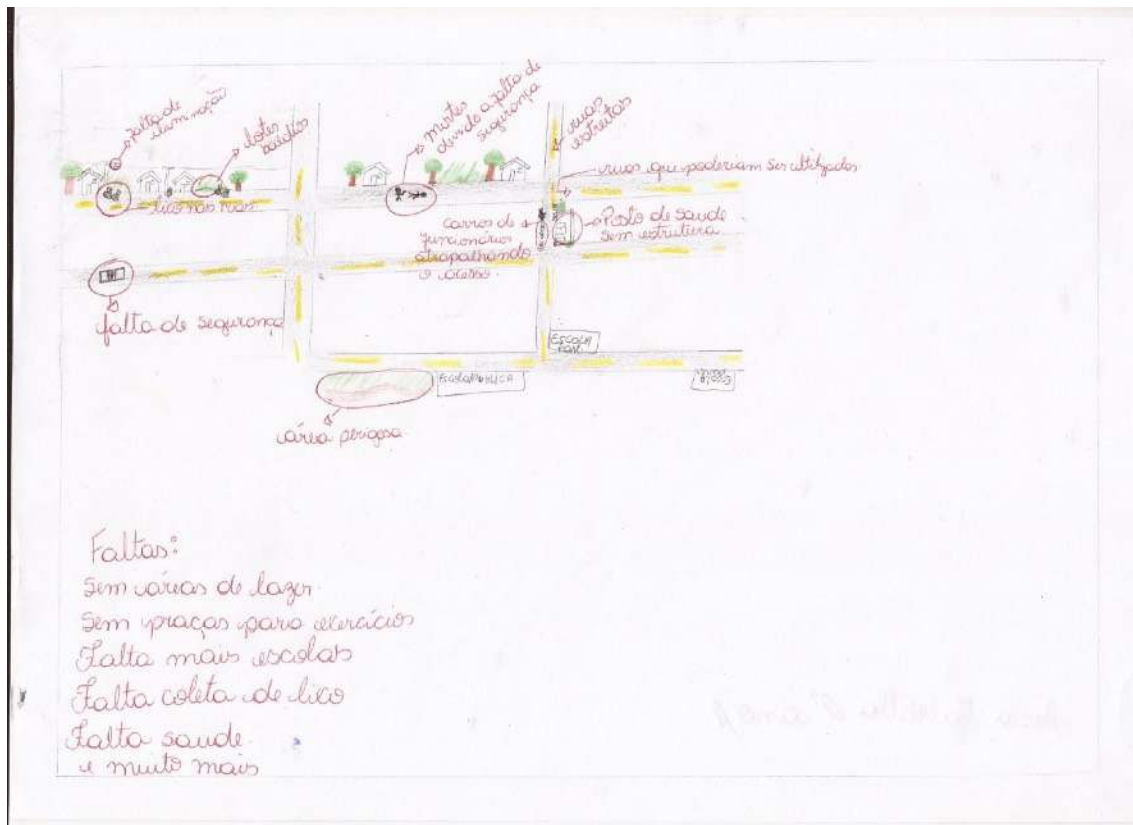 falta de
iluminação
lotes
baldios
mortes
devido a falta de
segurança
ruas
estreitas
ruas que poderiam ser utilizadas
lixo nas ruas
carros de
funcionários
atrapalhando
o acesso
Posto de saude
sem estrutura
falta de segurança
ESCOLA
ESCOLA PUBLICA
área perigosa
Faltas:
Sem áreas de lazer.
Sem praças para exercícios
Falta mais escolas
Falta coleta de lixo
Falta saude.
e muito mais